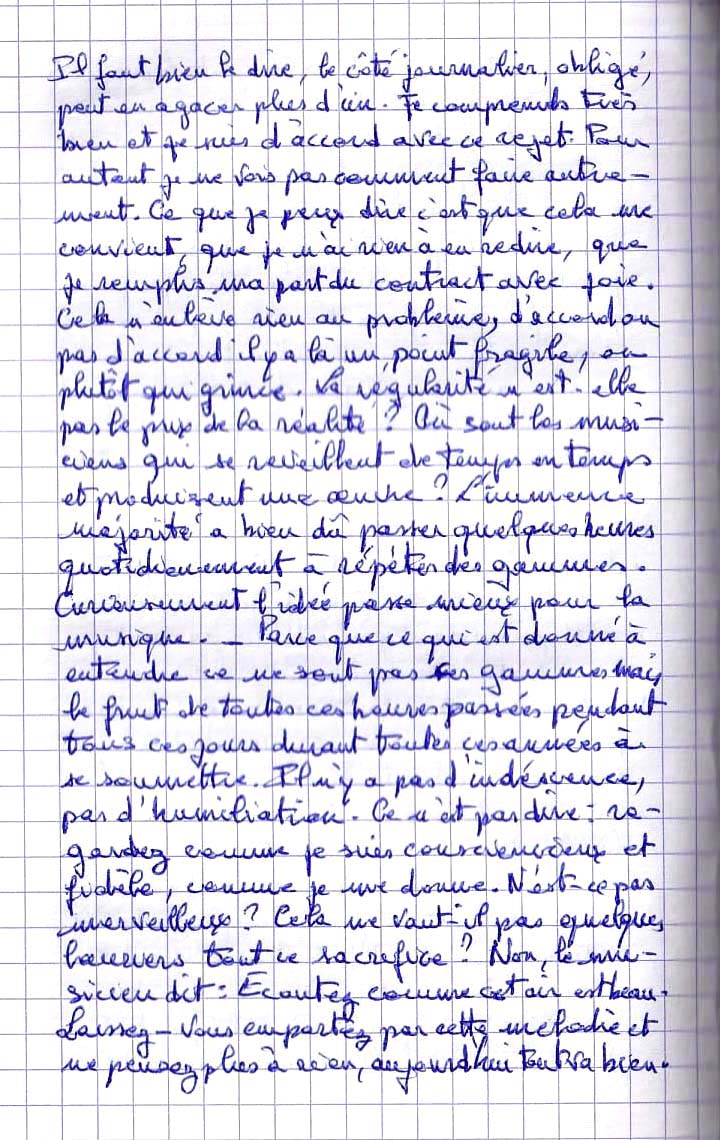 Il faut bien le dire, le côté journalier, obligé,
peut en agacer plus d'un. Je comprends très
bien et je suis d'accord avec ce rejet. Pour
autant je ne vois pas comment faire autre-
ment. Ce que je peux dire c'est que cela me
convient, que je n'ai rien à en redire, que
je remplis ma part du contract avec joie.
Cela n'enlève rien au problème, d'accord ou
pas d'accord il y a là un point fragile, ou
plutôt qui grince. La régularité n'est-elle
pas le prix de la réalité ? Où sont les musi-
ciens qui se reveillent de temps en temps
et produisent une œuvre ? L'immense
majorité a bien dû passer quelques heures
quotidiennement à répéter des gammes.
Curieusement l'idée passe mieux pour la
musique. - Parce que ce qui est donné à
entendre ce ne sont pas les gammes mais
le fruit de toutes ces heures passées pendant
tous ces jours durant toutes ces années à
se soumettre. Il n'y a pas d'indécence,
pas d'humiliation. Ce n'est pas dire : re-
gardez comme je suis consciencieux et
fidèle, comme je me donne. N'est-ce pas
merveilleux ? Cela ne vaut-il pas quelques
lauriers tout ce sacrifice ? Non, le mu-
sicien dit : Ecoutez comme cet air est beau.
Laissez-vous emportez par cette mélodie et
ne pensez plus à rien, aujourd'hui tout va bien.